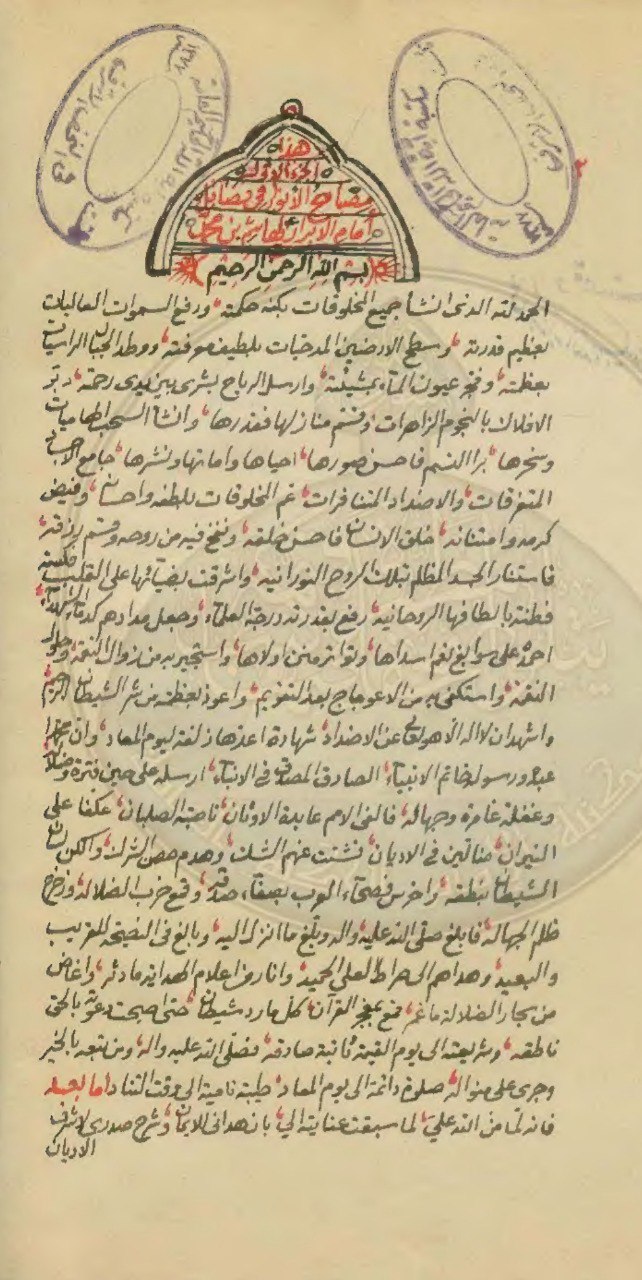 هذا
الجزء الاول
مصابيح الانوار في فضايل
امام الابرار لهاشم بن محمد
بسم الله الرحمن الرحيم
الحمد لله الذي انشأ جميع المخلوقات بكنه حكمته، ورفع السموات العاليات
بعظيم قدرته، وسطح الارضين المدحيات بلطيف معرفته، ووطد الجبال الراسيات
بعظمته، وفجر عيون المآء بمشيئته، وارسل الرياح بشرى بين يدي رحمته،
الافلاك بالنجوم الزاهرات، وقسم منازلها فقدرها، وانشا السحب الهاميات
وسخرها، برا النسم فاحسن صورها، احياها واماتها ونشرها، جامع
المتفرقات، والاضداد المتنافرات، عم المخلوقات بلطفه واحسانه، وفيض
كرمه وامتنانه، خلق الانسان فاحسن خلقه، ونفخ فيه من روحه وقسم رزقه،
فاستنار الجسد المظلم بتلك الروح النورانيه، واشرقت بضيآئها على القلب
فطنته بالطافها الروحانيه، رفع بقدرته درجة العلمآء، وجعل مدادهم كدمآء
احمده على سوابغ نعم اسداها، وتواتر منن اولاها، واستجير به من زوال النعمة، وحلول
النقمة، واستكفي به من الاعوجاج بعد التقويم، واعوذ بعظمته من شر الشيطان الرجيم
واشهد ان لا اله الا هو تعالى عن الاضداد، شهادة اعدها زلفة ليوم المعاد، وان محمدا
عبده ورسوله خاتم الانبيآء، الصادق المصدق في الانبآء، ارسله على حين فترة
وغفلة غامرة وجهالة، فالفى الامم عابدة الاوثان، ناصبة الصلبان، عكفا على
النيران، ضالين في الاديان، فشتت عنهم الشك، وهدم حصن الشرك،
الشيطان بنطقه، واخرس فصحآء العرب بصفآء صدقه، وقمع حزب الضلالة،
ظلم الجهالة، فابلغ صلى الله عليه واله وبلغ ما انزل اليه، وبالغ في النصح للقريب
والبعيد، وهداهم الى صراط العلي الحميد، وانار من اعلام الهداية ما دثر، واغاض
من بحار الضلالة ما غمر، قمع بمعجز القرآن، كل مارد شيطان، حتى اصبحت دعوته بالحق
ناطقه، وشريعته الى يوم القيمة ثابتة صادقه، فصلى الله عليه واله، ومن تبعه بالخير
وجرى على منواله، صلوة دائمة الى يوم المعاد، طيبة نامية الى وقت التناد، اما بعد
فانه لما من الله علي، لما سبقت عنايته الي، بان هداني للايمان، وشرح صدري لاشرف
الاديان